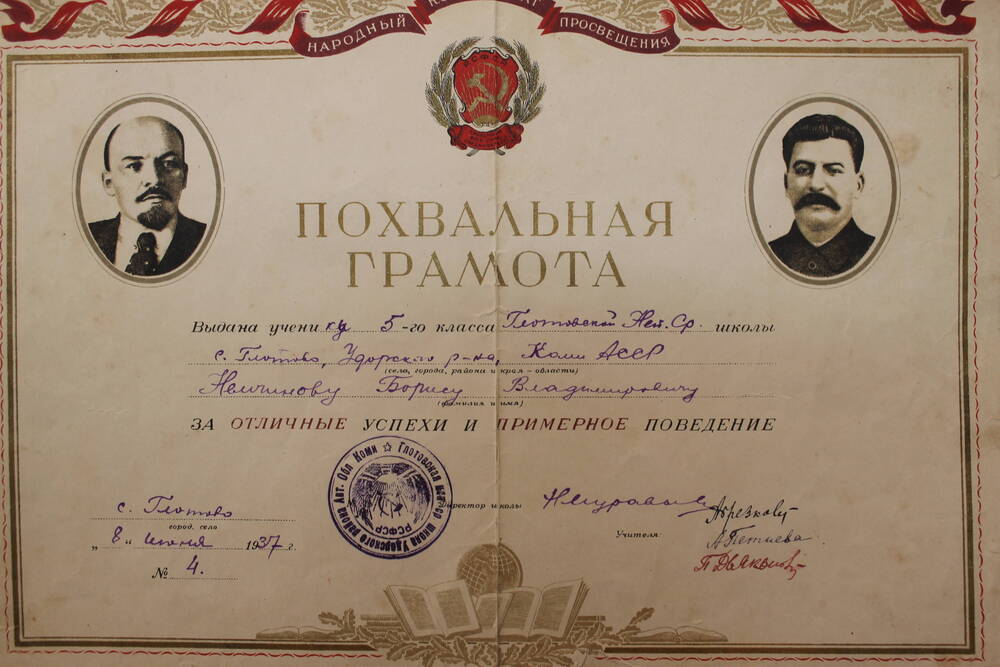 НАРОДНЫЙ
ПРОСВЕЩЕНИЯ
ПОХВАЛЬНАЯ
ГРАМОТА
Выдана ученику 5-го класса Глотовской Неп. Ср. школы
с. Глотово, Удорского р-на, Коми АССР
(село, города, района и края - области)
Немчинову Борису Владимировичу
(фамилия и имя)
ЗА ОТЛИЧНЫЕ УСПЕХИ И ПРИМЕРНОЕ ПОВЕДЕНИЕ
Авт. Обл Коми ☆ Глотовская школа Удорского района
РСФСР
с. Глотово
город, село
„ 8 " июня 1937 г.
№ 4.
Директор школы
Учителя: